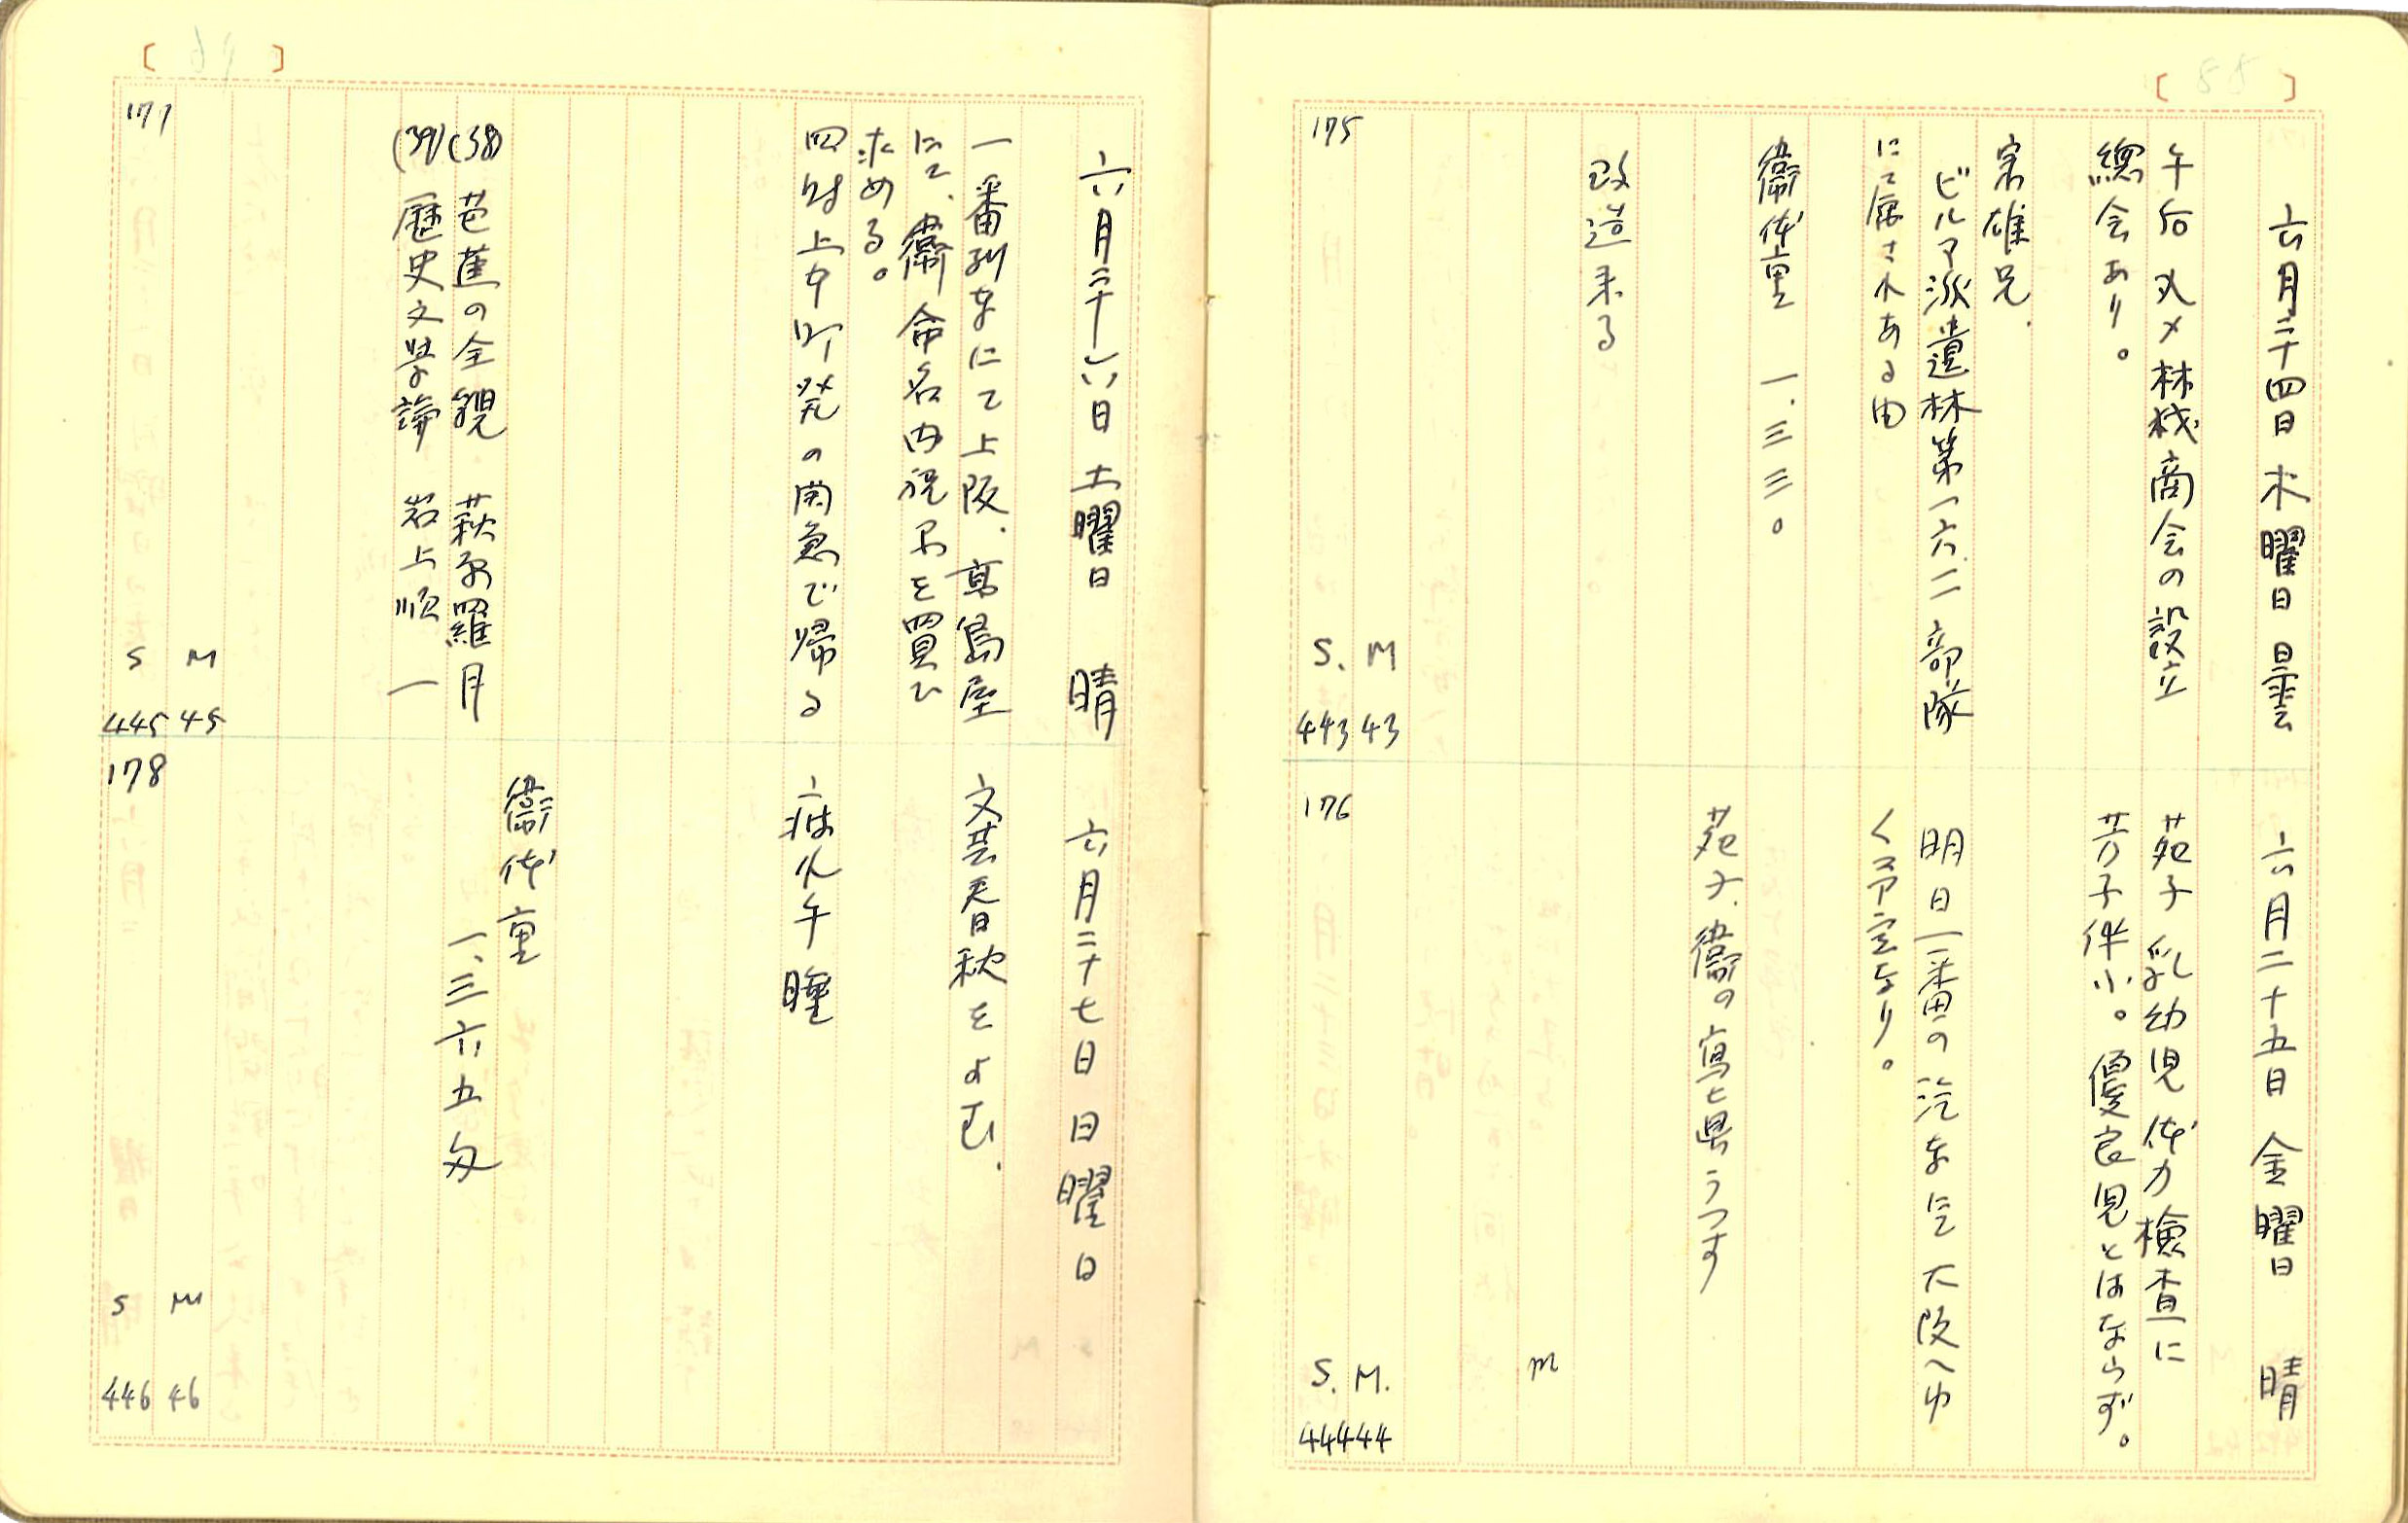 六月二十四日 木曜日 曇
午后 丸メ林材商会の設立
總会あり。
宗雄兄.
ビルマ派遣林第一六、二部隊
にて属されある由
衞体重 一.三三〇
改造来る
175
S. M
443 43
六月二十五日 金曜日 晴
苑子乳幼児体力檢査に
芳子伴ふ。優良児とはならず。
明日一番の汽車にて大阪へゆ
く予定なり。
苑子、衞の寫眞うつす
m
176
S. M.
444 44
六月二十六日 土曜日 晴
一番列車にて上阪.髙島屋
にて、衞命名内祝品を買ひ
求める。
四時上本町発の関急で帰る
(38) 芭蕉の全貌 萩原羅月
(39) 歴史文学論 岩上順一
177
S M
445 45
六月二十七日 日曜日
文芸春秋をよむ.
疲れ午睡
衞体重
一、三六五匁
178
S M
446 46